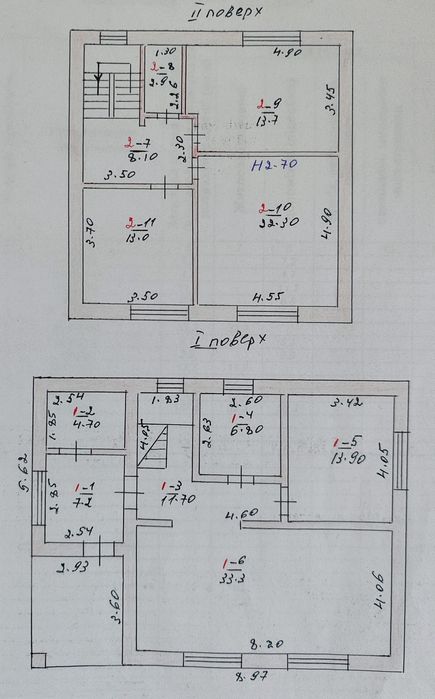 II поверх
1.30
4.90
2-8
2.9
2.26
2-9
13.7
3.45
2-7
8.10
2.30
3.50
H2.70
2-11
13.0
3.70
3.50
2-10
22.30
4.90
4.55
I поверх
2.54
1-2
4.70
1.85
1.83
4.05
2.60
1-4
6.80
2.63
3.42
1-5
13.90
4.05
5.62
2.85
1-1
7.2
2.54
1-3
17.70
4.60
2.93
3.60
1-6
33.3
4.06
8.20
8.97